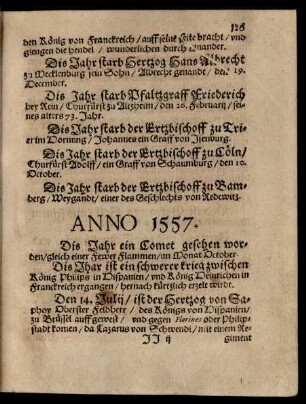 126
den König von Franckreich / auff seine Seite bracht / vnd
giengen die hendel / wunderlichen durch einander.
Dis Jahr starb Hertzog Hans Albrecht
zu Mecklenburg sein Sohn / Albrecht genandt / den 19.
December.
Dis Jahr starb Pfaltzgraff Friederich
bey Rein / Churfürst zu Altzheim / den 26. Februarij / sei-
nes alters 73. Jahr.
Dis Jahr starb der Ertzbischoff zu Tri-
er im Hornung / Johannes ein Graff von Isenburg.
Dis Jahr starb der Ertzbischoff zu Cöln /
Churfürst Adolff / ein Graff von Schaumburg / den 10.
October.
Dis Jahr starb der Ertzbischoff zu Bam-
berg / Weygandt / einer des Geschlechts von Redewitz.
ANNO 1557.
Dis Jahr ein Comet gesehen wor-
den / gleich einer Fewer Flammen / im Monat October.
Dis Jhar ist ein schwerer krieg zwischen
König Philips in Hispanien / vnd König Heinrichen in
Franckreich ergangen / hernach kürtzlich erzelt wird.
Den 14. Julij / ist der Hertzog von Sa-
phoy Oberster Feldherr / des Königs von Hispanien /
zu Brüssel auff gewest / vnd gegen Florines oder Philip-
stadt komen / da Lazarus von Schwendi / mit einem Re-
II ij giment